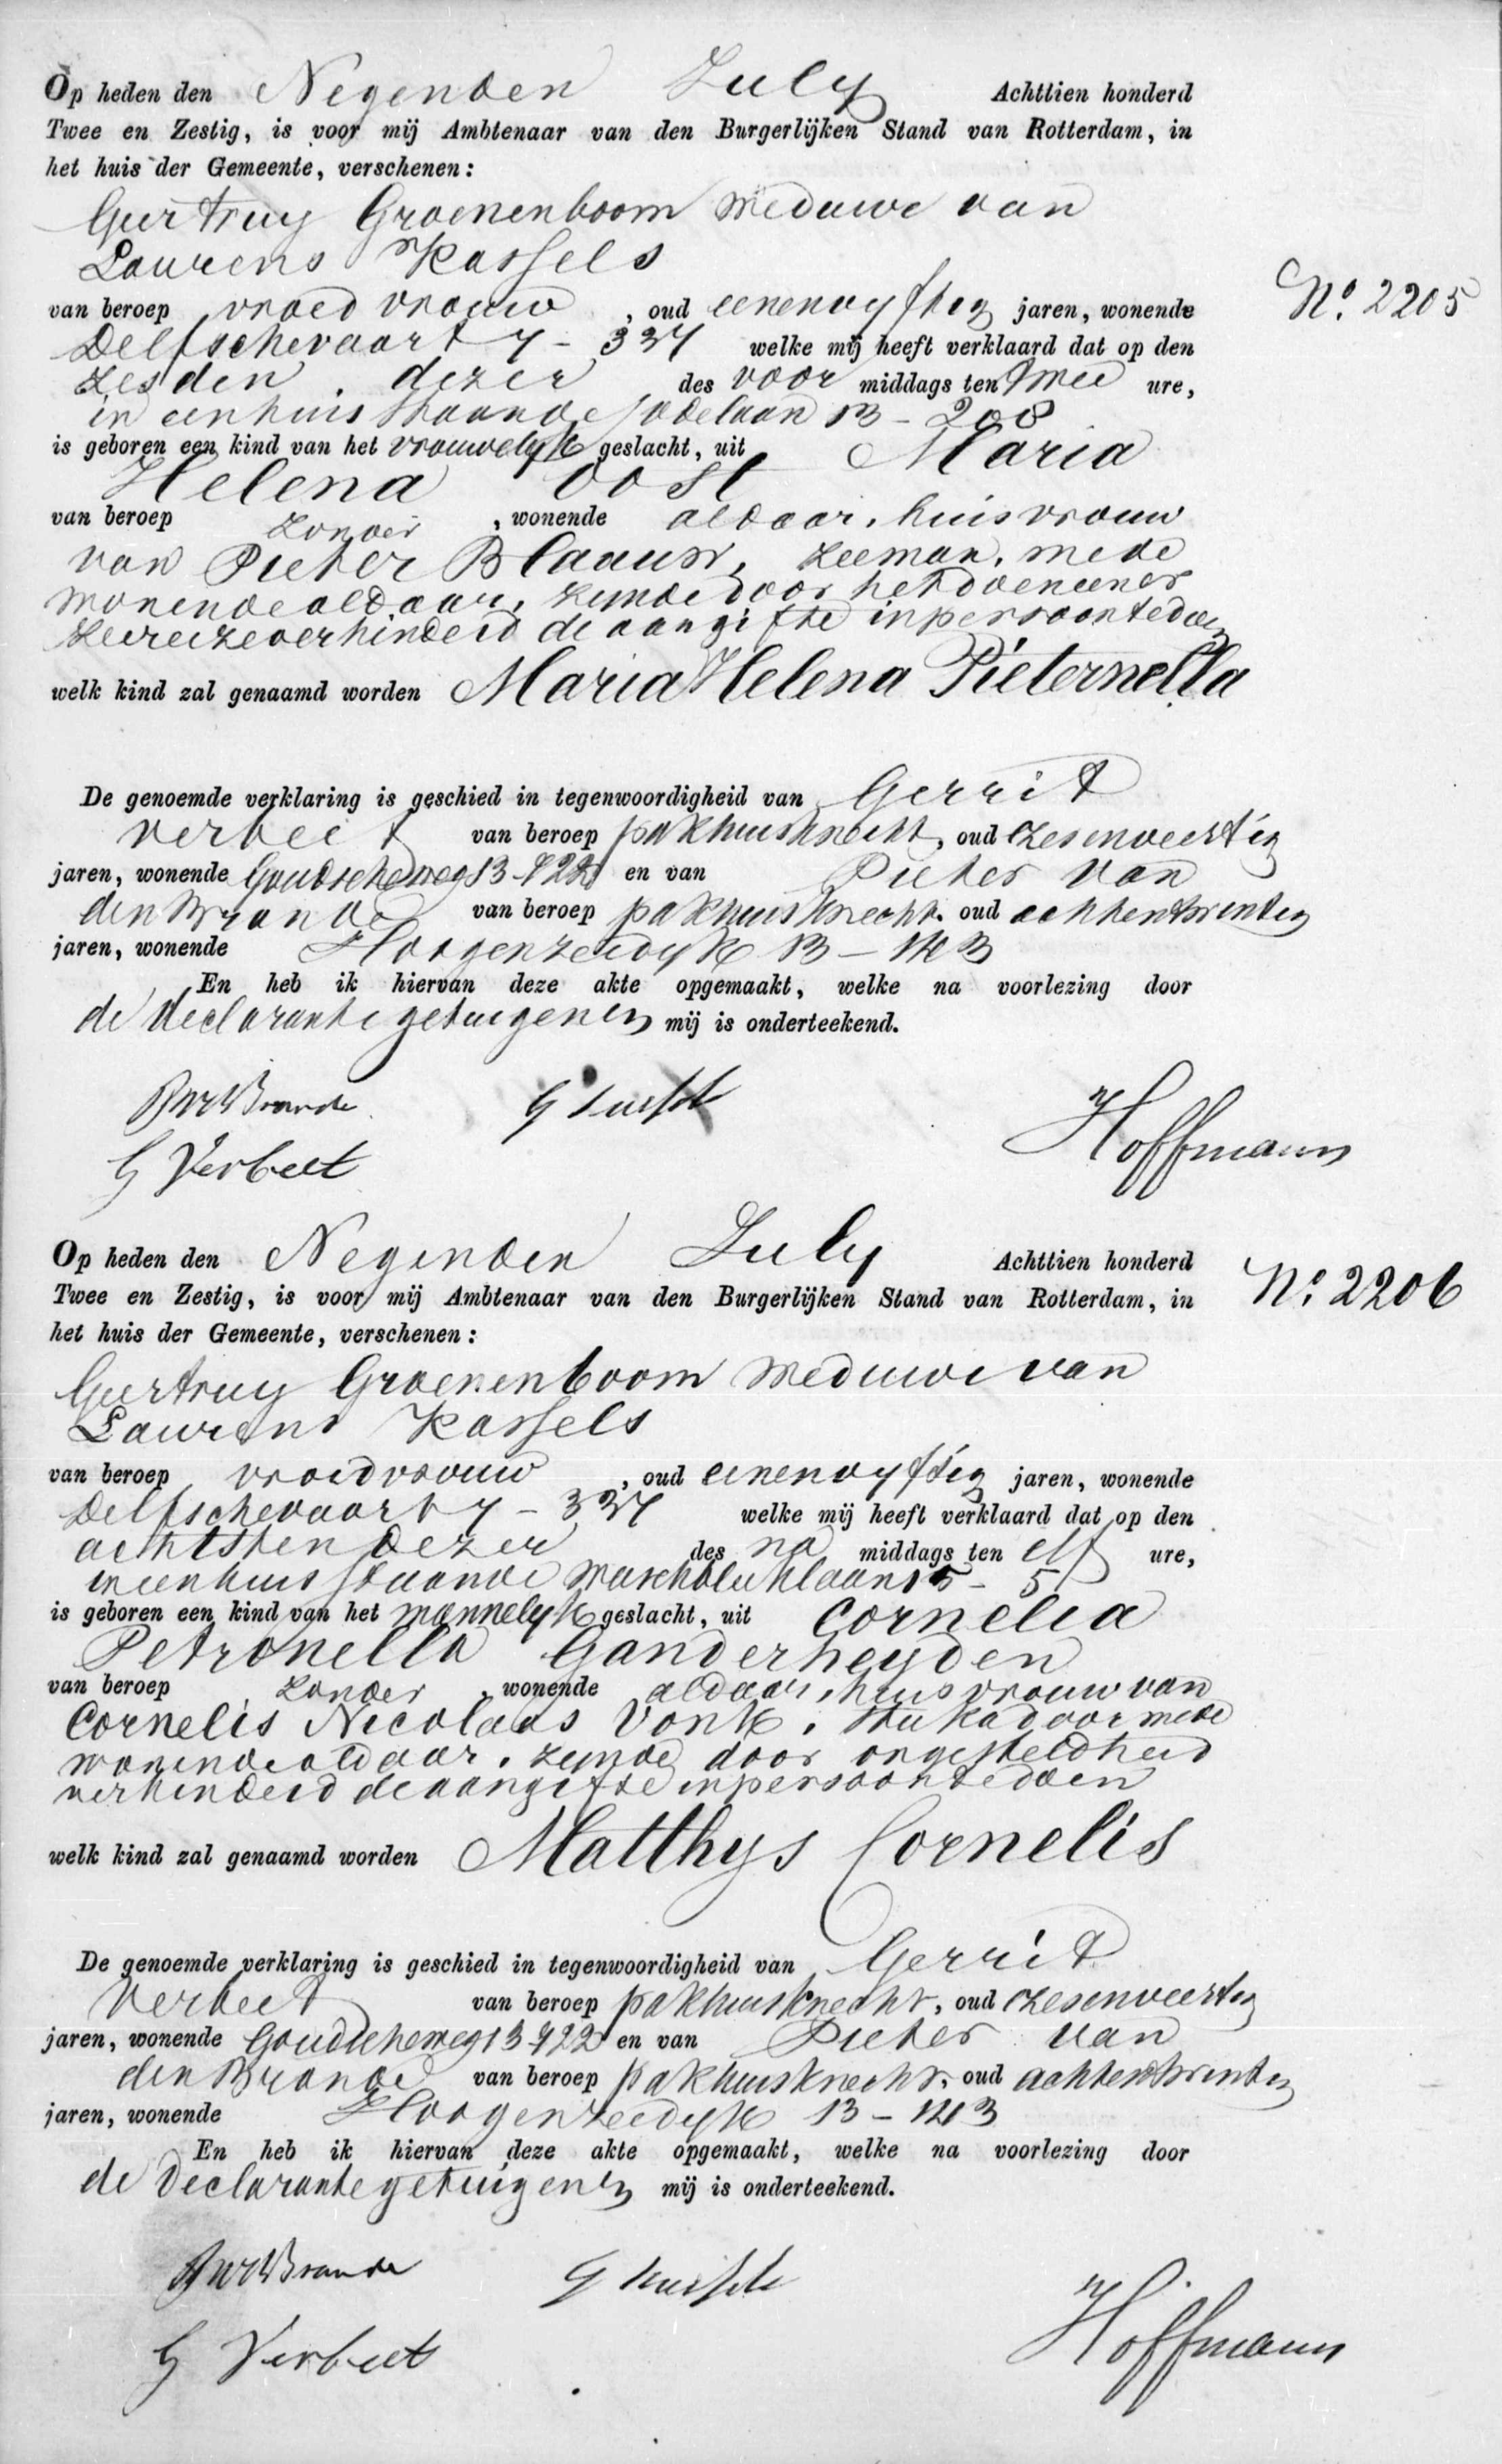 Op heden den Negenden July Achttien honderd
Twee en Zestig, is voor mij Ambtenaar van den Burgerlijken Stand van Rotterdam, in
het huis der Gemeente, verschenen:
Geertruy Groenenboom weduwe van
Laurens Kassels
No. 2205
van beroep vroedvrouw, oud eenenvyftig jaren, wonende
Delfschevaart 7 - 337 welke mij heeft verklaard dat op den
zesden dezer des voor middags ten twee ure,
in een huis staande Jodelaan 13 - 208
is geboren een kind van het vrouwelyk geslacht, uit Maria
Helena Oost
van beroep zonder, wonende aldaar, huisvrouw
van Pieter Blaauw, zeeman, mede
wonende aldaar, zynde door het doen eener
zeereize verhinderd de aangifte in persoon te doen
welk kind zal genaamd worden Maria Helena Pieternella
De genoemde verklaring is geschied in tegenwoordigheid van Gerrit
Verbeet van beroep pakhuisknecht, oud zesenveertig
jaren, wonende Goudscheweg 13-922 en van Pieter van
den Brande van beroep pakhuisknecht, oud achtentwintig
jaren, wonende Hoogenzeedyk 13 -
En heb ik hiervan deze akte opgemaakt, welke na voorlezing door
de declarante getuigen en mij is onderteekend.
Hoffmann
G Verbeet
Op heden den Negenden July Achttien honderd
No. 2206
Twee en Zestig, is voor mij Ambtenaar van den Burgerlijken Stand van Rotterdam, in
het huis der Gemeente, verschenen:
Geertruy Groenenboom weduwe van
Laurens Kassels
van beroep vroedvrouw, oud eenenvyftig jaren, wonende
Delfschevaart 7 - 337 welke mij heeft verklaard dat op den
achtsten dezer des na middags ten elf ure,
in een huis staande 15 - 5
is geboren een kind van het mannelyk geslacht, uit Cornelia
Petronella Ganderheyden
van beroep zonder, wonende aldaar, huisvrouw van
Cornelis Nicolaas Vonk, stukadoor mede
wonende aldaar, zynde door ongesteldheid
verhinderd de aangifte in persoon te doen
welk kind zal genaamd worden Matthys Cornelis
De genoemde verklaring is geschied in tegenwoordigheid van Gerrit
Verbeet van beroep pakhuisknecht, oud zesenveertig
jaren, wonende Goudscheweg 13-922 en van Pieter van
den Brande van beroep pakhuisknecht, oud achtentwintig
jaren, wonende Hoogenzeedyk 13 -
En heb ik hiervan deze akte opgemaakt, welke na voorlezing door
de declarante getuigen en mij is onderteekend.
Hoffmann
G Verbeet